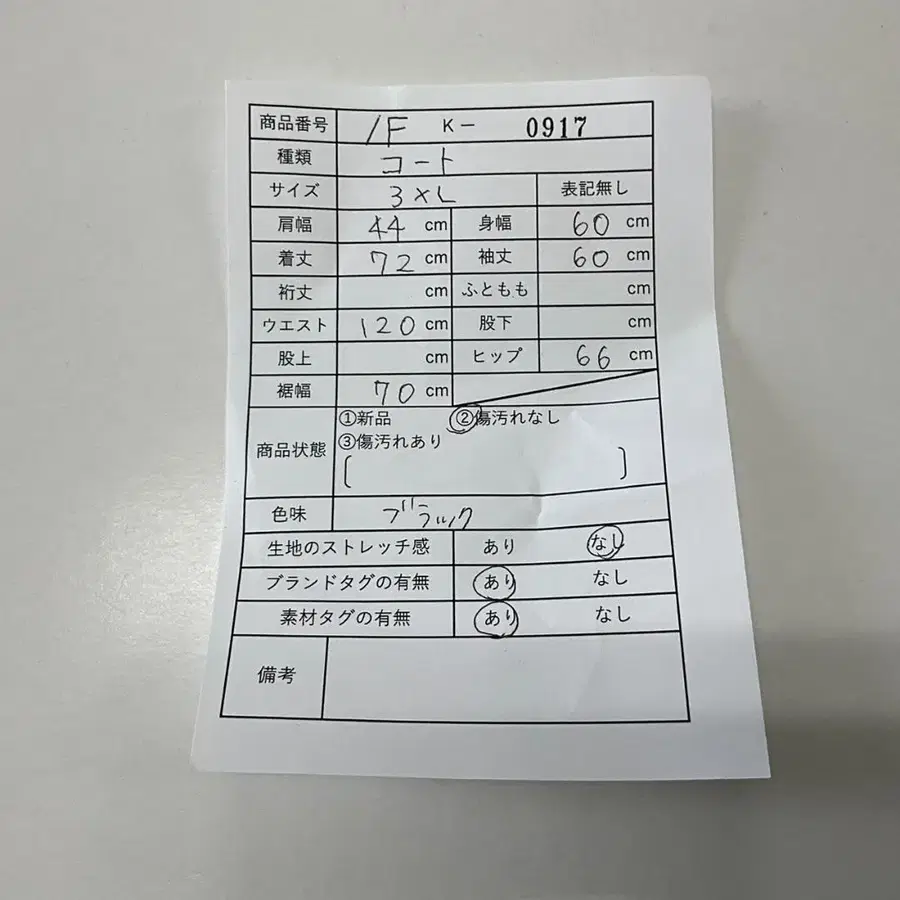 商品番号 1F K- 0917
種類 コート
サイズ 3XL 表記無し
肩幅 44 cm 身幅 60 cm
着丈 72 cm 袖丈 60 cm
裄丈 cm ふともも cm
ウエスト 120 cm 股下 cm
股上 cm ヒップ 66 cm
裾幅 70 cm
商品状態 ①新品 ②傷汚れなし
③傷汚れあり
( )
色味 ブラック
生地のストレッチ感 あり なし
ブランドタグの有無 あり なし
素材タグの有無 あり なし
備考